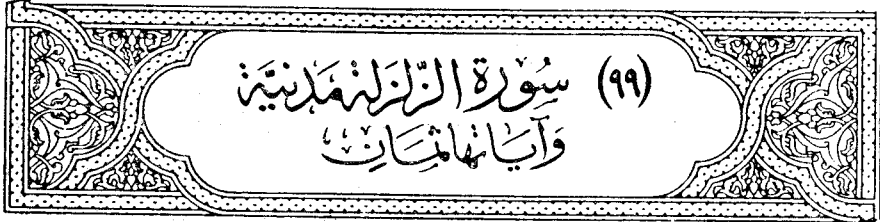 (٩٩) سُورَةُ الزَّلْزَلَةِ مَدَنِيَّة
وَآيَاتُهَا ثَمَانٍ